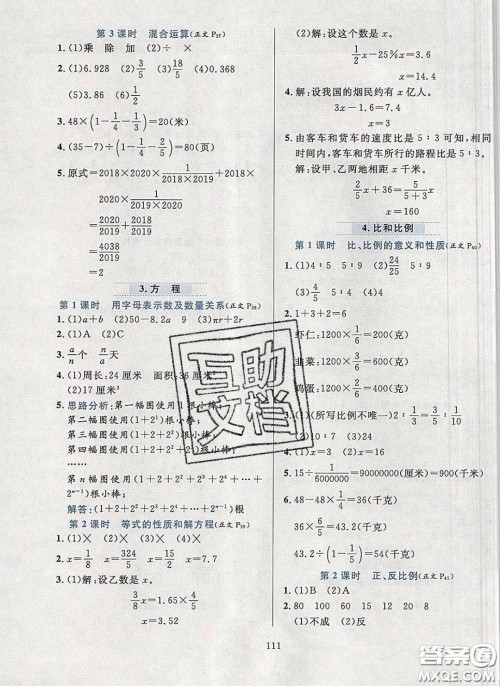 第3课时 混合运算(正文P37)
1.(1)乘 除 加 (2)÷ ×
2.(1)6.928 (2)3/5 (3)2/3 (4)18/5
(5)3.86 (6)3
3.48×(1-1/4-1/3)=20(米)
4.(35-7)÷(1-1/4-2/5)=80(页)
5.原式=2018×2020×1/(2018×2019)+2018×
2020×1/(2019×2020)
=2020/2019+2018/2019
=4038/2019
=2
3.方 程
第1课时 用字母表示数及数量关系(正文P38)
1.(1)a+b (2)50-8.2a 9 (3)πr+2r
2.(1)A (2)C
3.a/n个 n/a天
4.(1)周长:24厘米 面积:36厘米²
(2)17厘米³
5.思路分析:第一幅图使用1根小棒;
第二幅图使用(1+2¹)根小棒;
第三幅图使用(1+2¹+2²)根小棒;
第四幅图使用(1+2¹+2²+2³)根小棒;
……
第n幅图使用(1+2¹+2²+2³+2⁴+…+
2ⁿ⁻¹)根小棒;
解答:(1+2¹+2²+2³+2⁴+…+2ⁿ⁻¹)根
第2课时 等式的性质和解方程(正文P39)
2.x=1/8 x=324/5 x=15/4 x=7.7
3.(1)解:设乙数是x。
3/8x=1.65×4/5
x=3.52
(2)解:设这个数是x。
1/2x-25%x=3.6
x=14.4
4.解:设我国的烟民约有x亿人。
3x-1.6=7.4
x=3
5.由客车和货车的速度比是5∶3可知,相同
时间内,客车和货车所行的路程比是5∶3。
解:设甲、乙两地相距x千米。
2/5x+36=5/(5+3)x
x=160
4.比和比例
第1课时 比、比例的意义和性质(正文P40)
1.(1)4∶5 5∶9 (2)4∶5 5∶9
2.1+3+2=6
虾仁:1200×1/6=200(克)
韭菜:1200×3/6=600(克)
鸡蛋:1200×2/6=400(克)
3.(1)(所写比例不唯一)2∶1/3=3/5∶1/10
(2)10 (3)7 (4)24
4.15÷1/6000000=90000000(厘米)
90000000厘米=900千米
5.48-48×1/4=36(千克)
43.2÷(1-1/6)-36(千克)
第2课时 正、反比例(正文P41)
1.(1)B (2)A
2.80 100 60 120 8 15
3.(1)不成 (2)反
111
互助
文档
答案圈
MXQE.COM